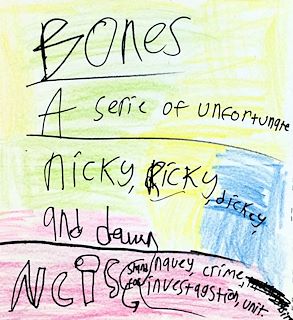 Bones
A serie of unfortunate
nicky, Ricky, dickey,
and dawn
NCIS stand for navey, crime, investagation, unit